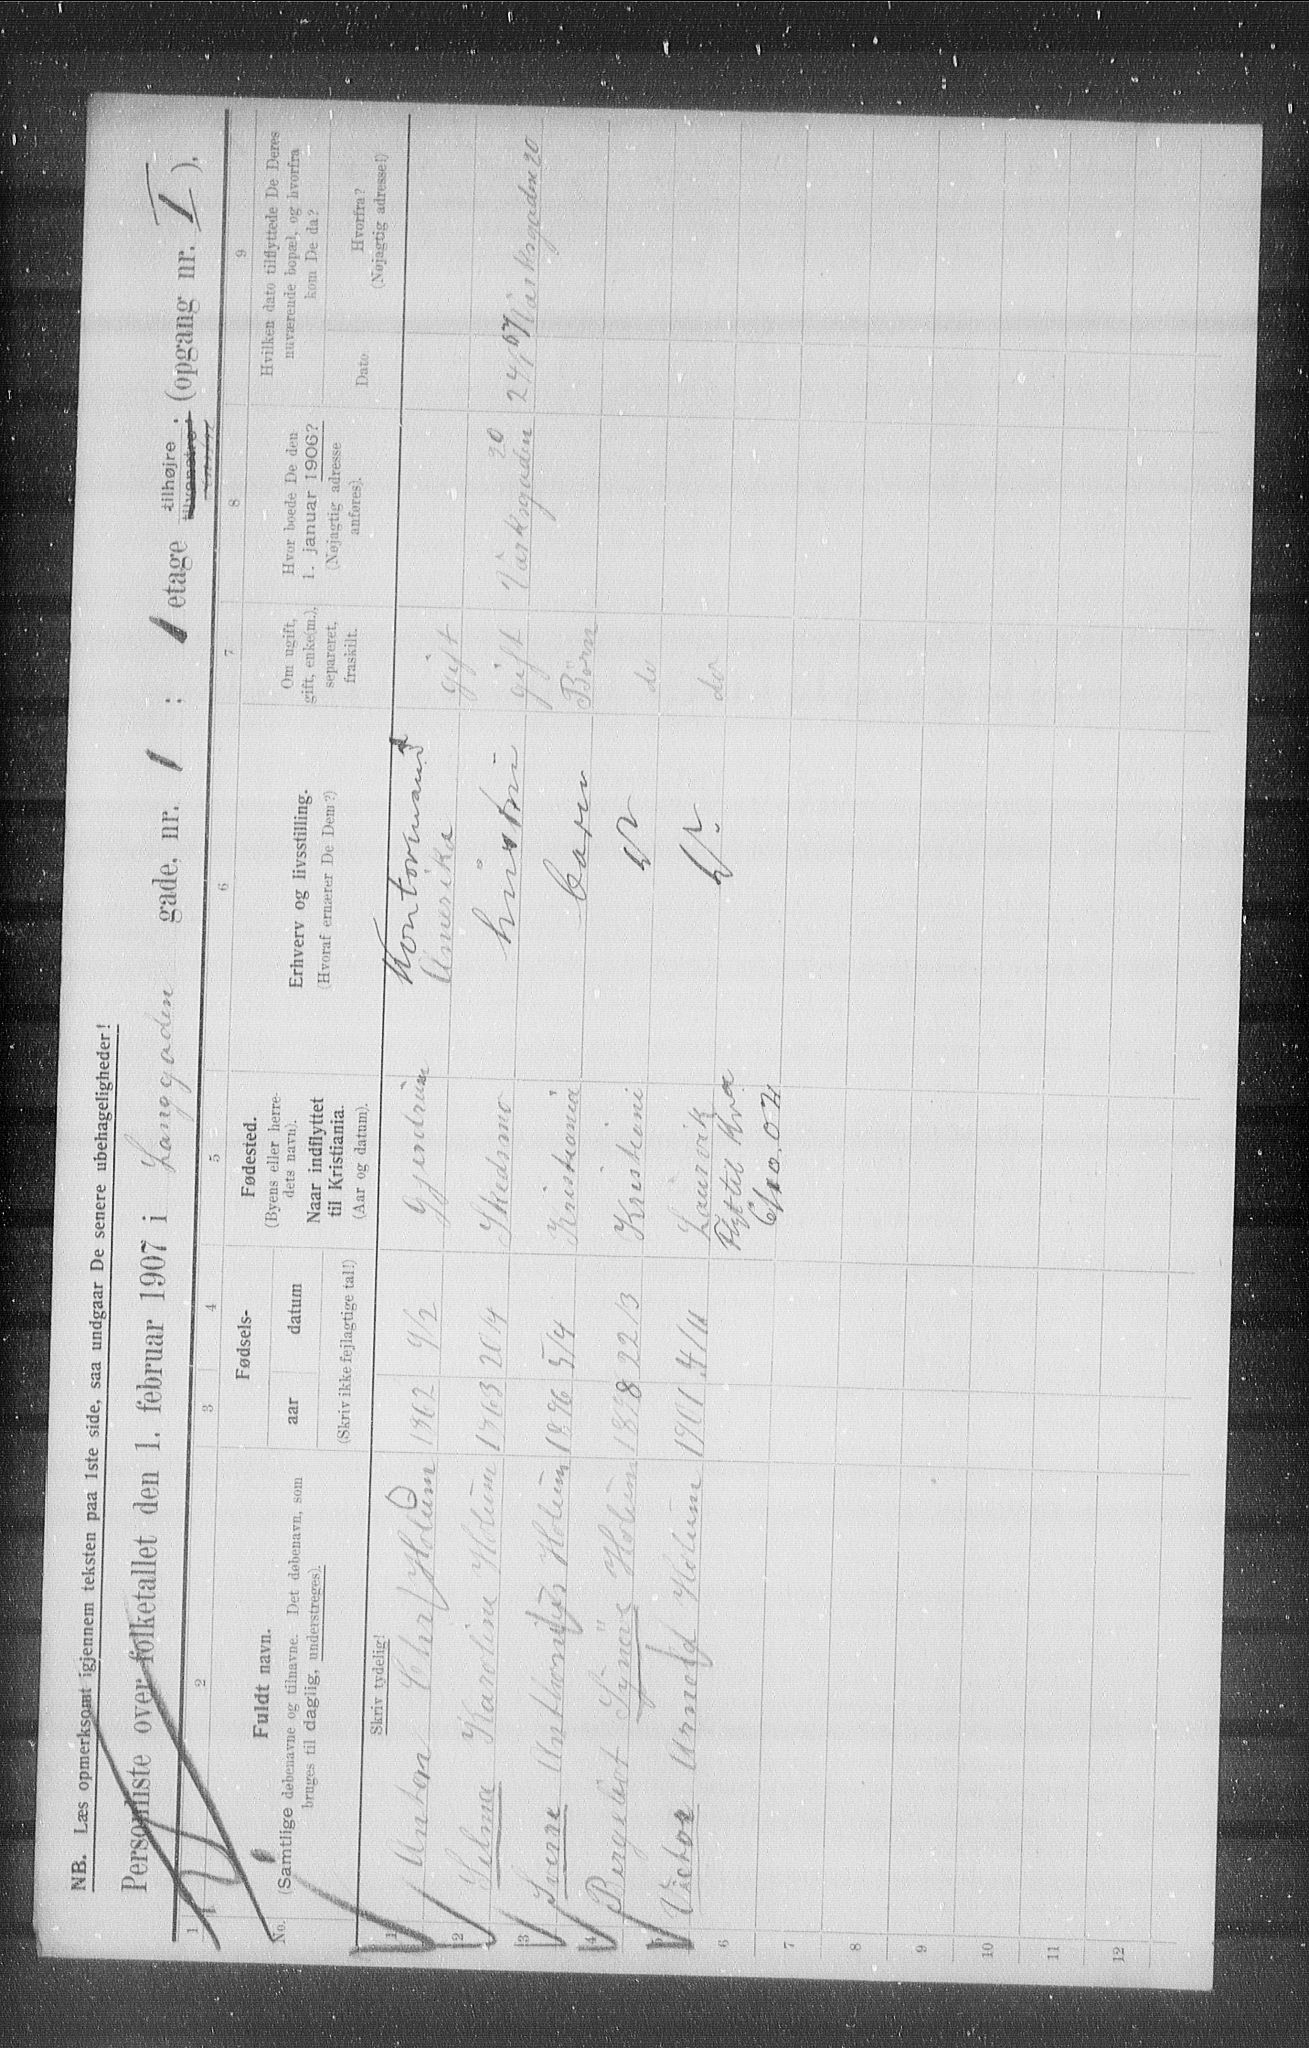 NB. Læs opmerksomt igjennem teksten paa 1ste side, saa undgaar De senere ubehageligheder!
Personliste over folketallet den 1. februar 1907 i Langgaden gade, nr. 1 ; 1 etage tilhøjre ; (opgang nr. I ),
tilvenstre ;
1 2 3 4 5 6 7 8 9
No.
Fuldt navn.
(Samtlige døbenavne og tilnavne. Det døbenavn, som
bruges til daglig, understreges).
Fødsels-
aar datum
(Skriv ikke fejlagtige tal!)
Fødested.
(Byens eller herre-
dets navn).
Naar indflyttet
til Kristiania.
(Aar og datum).
Erhverv og livsstilling.
(Hvoraf ernærer De Dem?)
Om ugift,
gift, enke(m.),
separeret,
fraskilt.
Hvor boede De den
1. januar 1906?
(Nøjagtig adresse
anføres).
Hvilken dato tilflyttede De Deres
nuværende bopæl, og hvorfra
kom De da?
Dato
Hvorfra?
(Nøjagtig adresse!)
Skriv tydelig!
1 Anton Holum 1862 9/2 Gjendrum Kontormand gift
Amerika
2 Selma Karoline Holum 1863 20/4 Skedsmo hustru gift Værksgaden 20 24/1 07 Værksgaden 20
3 Sverre Holum 1896 5/4 Kristiania barn Börn
4 Bergliot Signäe Holum 1898 22/3 Kristiani do
5 Victor Arnold Holum 1901 4/11 Laurvik do
6 Flyttet Kra
7 6/10.04
8
9
10
11
12